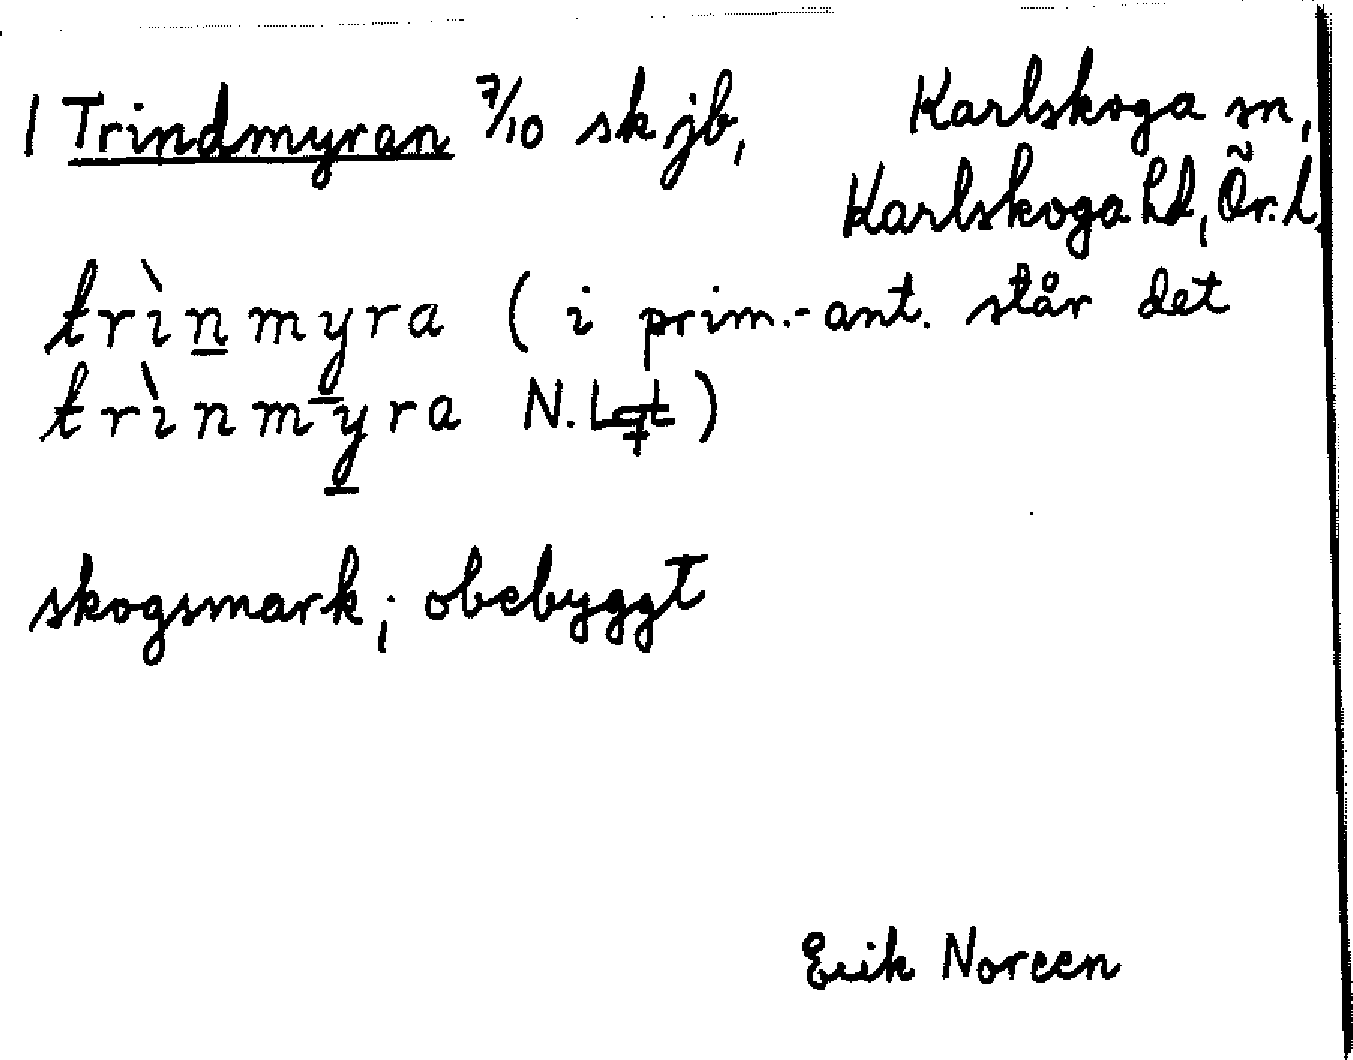 1 Trindmyran 7/10 skjb, Karlskoga sn,
Karlskoga hd, Ör. l.
trìnmyra (i prim.-ant. står det
trìnmyra N.Lgt)
skogsmark; obebyggt
Erik Noreen